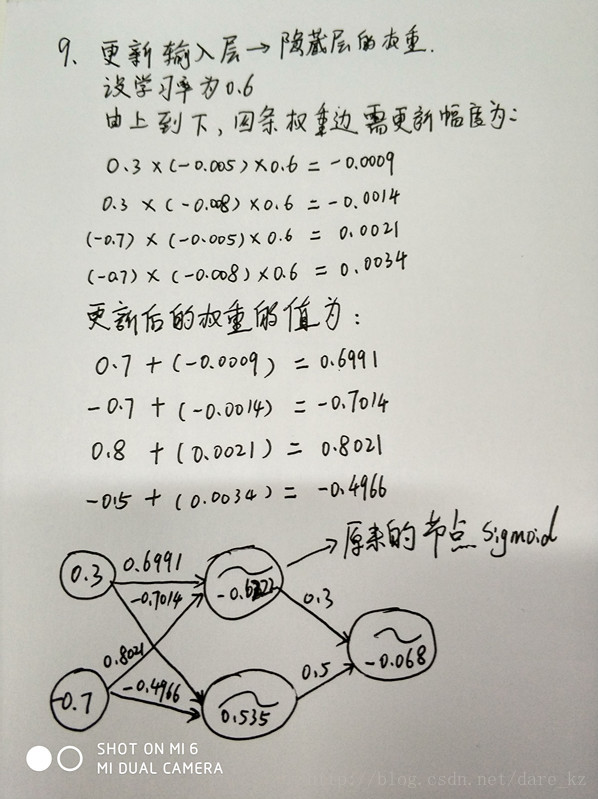 9. 更新输入层→隐藏层的权重.
设学习率为0.6
由上到下，四条权重边需更新幅度为：
0.3 × (-0.005) × 0.6 = -0.0009
0.3 × (-0.008) × 0.6 = -0.0014
(-0.7) × (-0.005) × 0.6 = 0.0021
(-0.7) × (-0.008) × 0.6 = 0.0034
更新后的权重的值为：
0.7 + (-0.0009) = 0.6991
-0.7 + (-0.0014) = -0.7014
0.8 + (0.0021) = 0.8021
-0.5 + (0.0034) = -0.4966
原来的节点 sigmoid
0.3
0.6991
-0.7014
0.3
0.8021
-0.068
-0.7
-0.4966
0.535
0.5
SHOT ON MI 6
MI DUAL CAMERA
http://blog.csdn.net/dare_kz